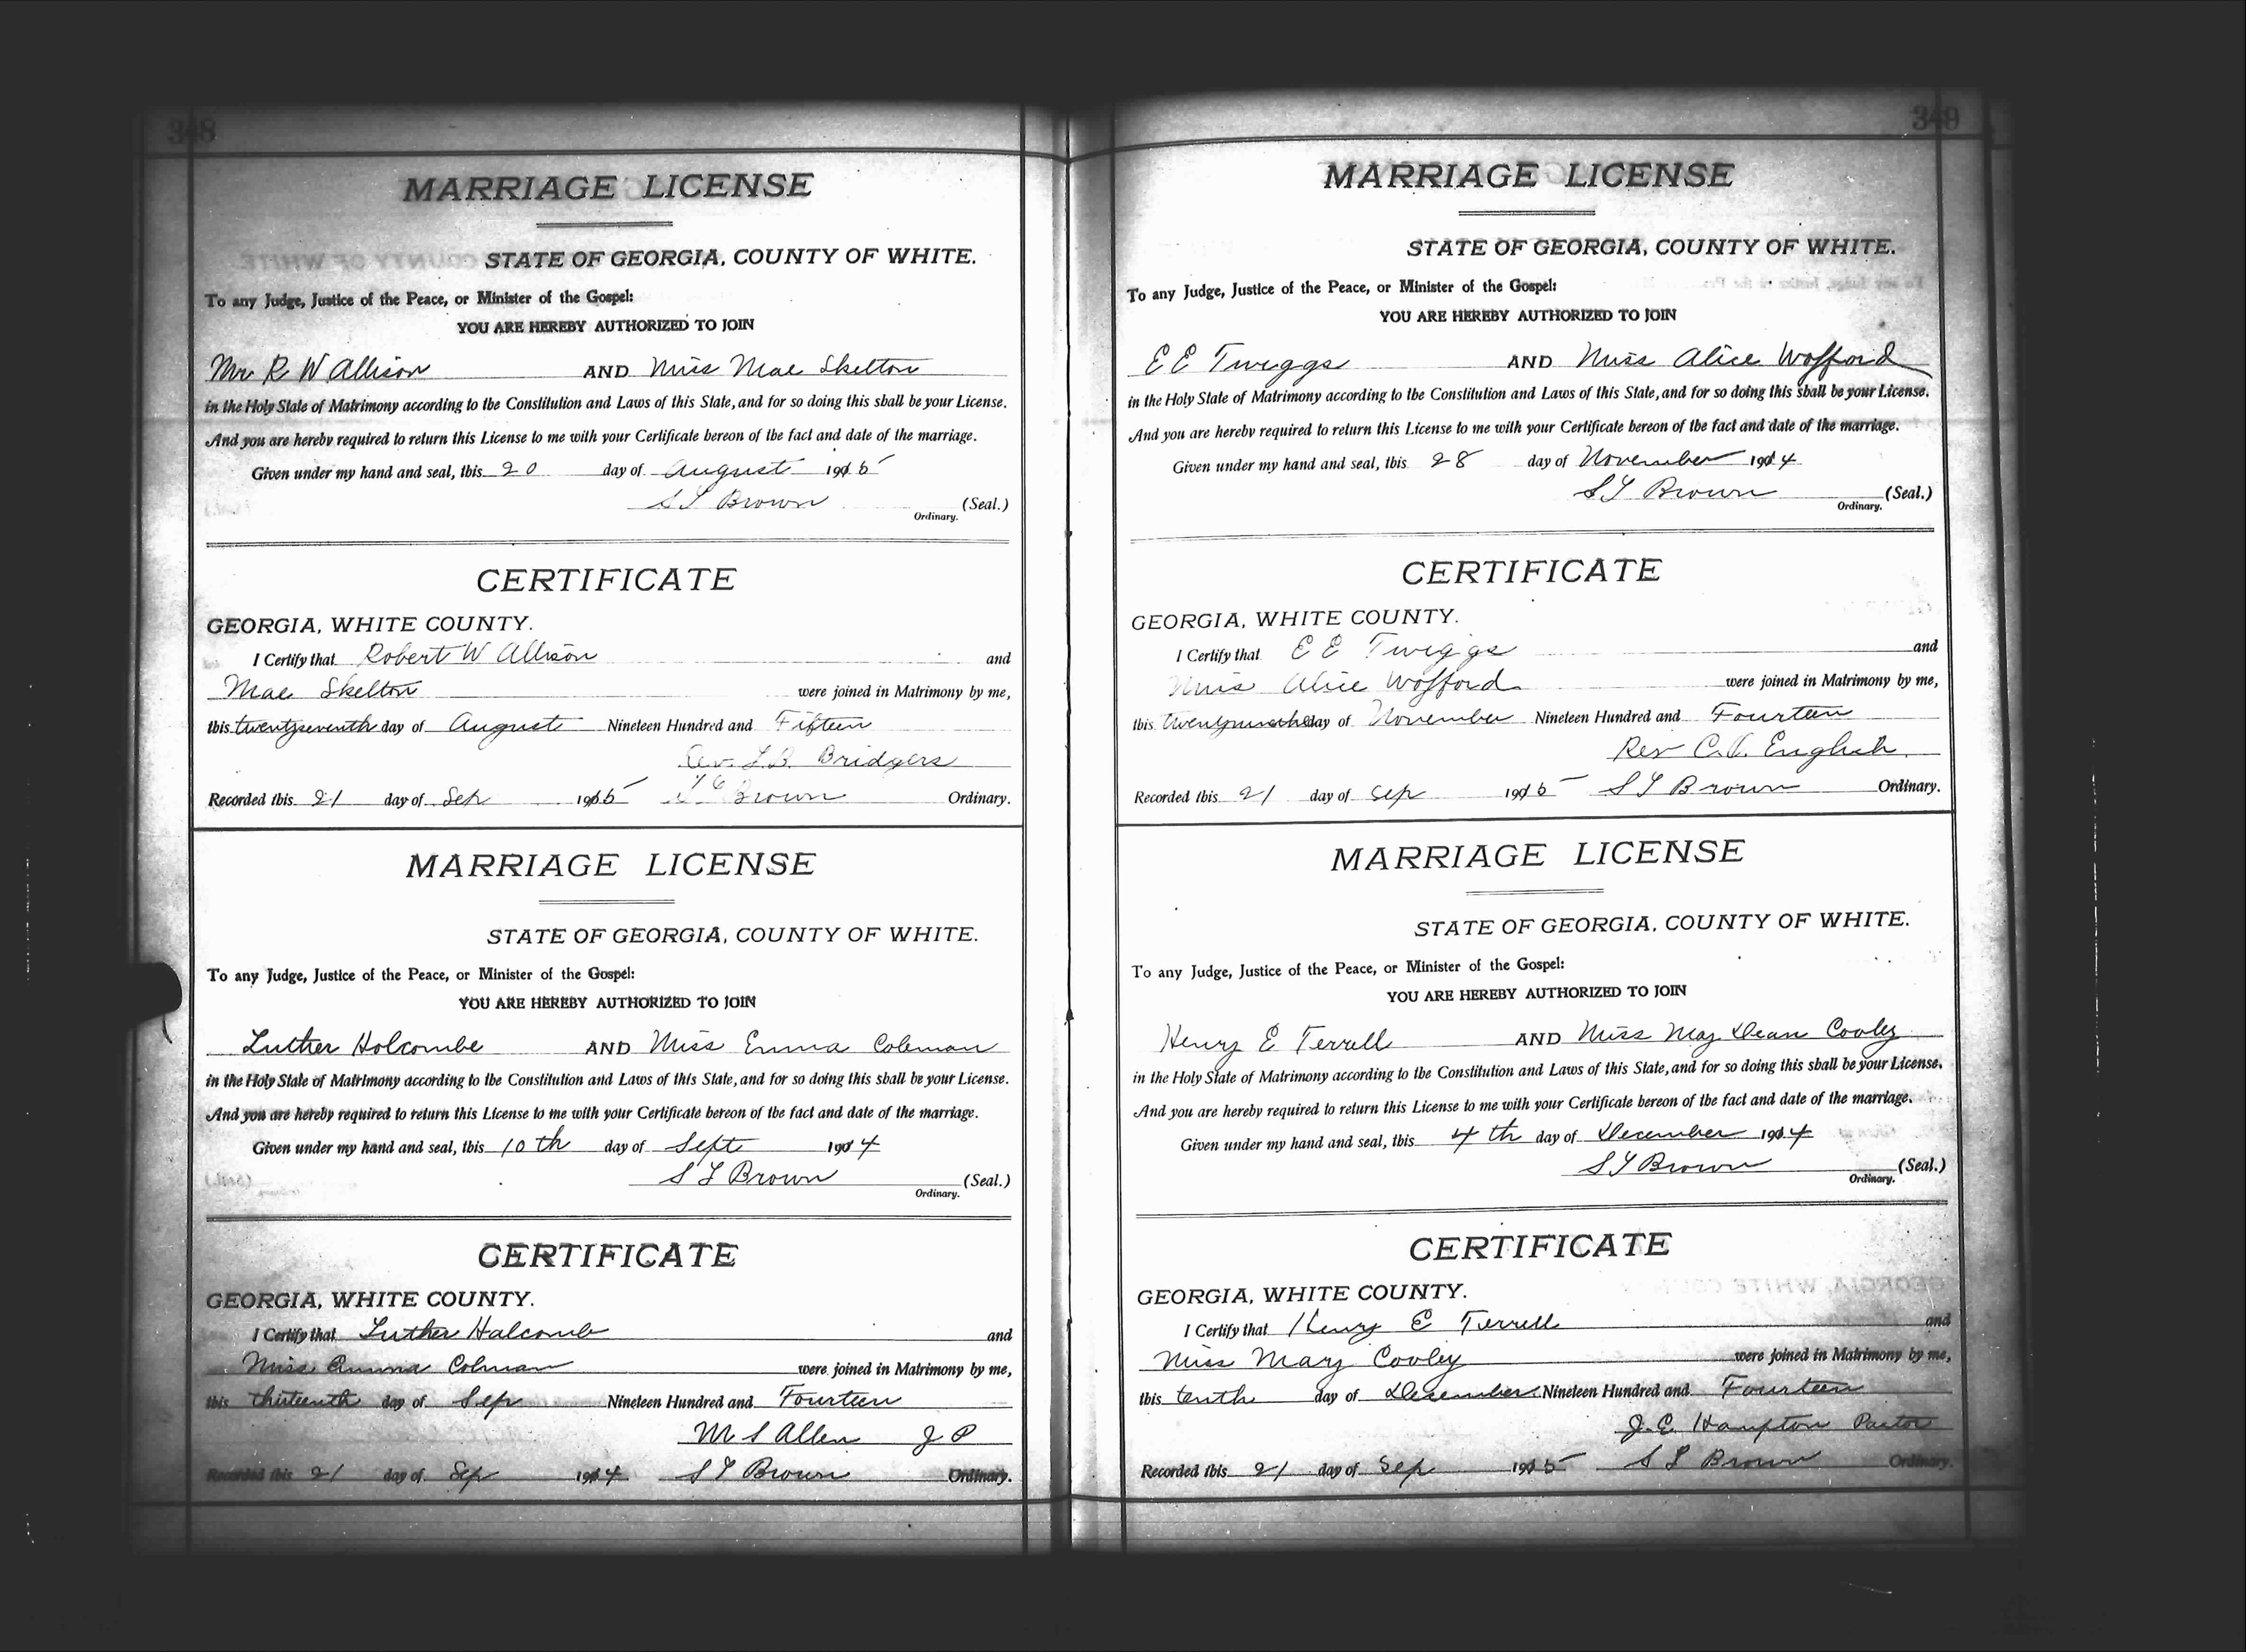 348
MARRIAGE LICENSE
STATE OF GEORGIA, COUNTY OF WHITE.
To any Judge, Justice of the Peace, or Minister of the Gospel:
YOU ARE HEREBY AUTHORIZED TO JOIN
Mr R W Allison AND Miss Mae Skelton
in the Holy State of Matrimony according to the Constitution and Laws of this State, and for so doing this shall be your License.
And you are hereby required to return this License to me with your Certificate hereon of the fact and date of the marriage.
Given under my hand and seal, this 20 day of August 1915
Brown (Seal.)
Ordinary.
CERTIFICATE
GEORGIA, WHITE COUNTY.
I Certify that Robert W Allison and
Mae Skelton were joined in Matrimony by me,
this twentyseventh day of August Nineteen Hundred and Fifteen
Rev. L.B. Bridgers
Recorded this 21 day of Sep 1915 Brown Ordinary.
MARRIAGE LICENSE
STATE OF GEORGIA, COUNTY OF WHITE.
To any Judge, Justice of the Peace, or Minister of the Gospel:
YOU ARE HEREBY AUTHORIZED TO JOIN
Luther Holcombe AND Miss Emma Coleman
in the Holy State of Matrimony according to the Constitution and Laws of this State, and for so doing this shall be your License.
And you are hereby required to return this License to me with your Certificate hereon of the fact and date of the marriage.
Given under my hand and seal, this 10th day of Sept 1914
Brown (Seal.)
Ordinary.
CERTIFICATE
GEORGIA, WHITE COUNTY.
I Certify that Luther Halcomb and
Miss Emma Colman were joined in Matrimony by me,
this thirteenth day of Sep Nineteen Hundred and Fourteen
M S Allen J P
Recorded this 21 day of Sep 1914 Brown Ordinary.
349
MARRIAGE LICENSE
STATE OF GEORGIA, COUNTY OF WHITE.
To any Judge, Justice of the Peace, or Minister of the Gospel:
YOU ARE HEREBY AUTHORIZED TO JOIN
E E Twiggs AND Miss Alice Wofford
in the Holy State of Matrimony according to the Constitution and Laws of this State, and for so doing this shall be your License.
And you are hereby required to return this License to me with your Certificate hereon of the fact and date of the marriage.
Given under my hand and seal, this 28 day of November 1914
Brown (Seal.)
Ordinary.
CERTIFICATE
GEORGIA, WHITE COUNTY.
I Certify that E E Twiggs and
Miss Alice Wofford were joined in Matrimony by me,
this day of November Nineteen Hundred and Fourteen
Rev C. English
Recorded this 21 day of Sep 1915 Brown Ordinary.
MARRIAGE LICENSE
STATE OF GEORGIA, COUNTY OF WHITE.
To any Judge, Justice of the Peace, or Minister of the Gospel:
YOU ARE HEREBY AUTHORIZED TO JOIN
Henry E Terrell AND Miss May Dean Cooley
in the Holy State of Matrimony according to the Constitution and Laws of this State, and for so doing this shall be your License.
And you are hereby required to return this License to me with your Certificate hereon of the fact and date of the marriage.
Given under my hand and seal, this 4th day of December 1914
Brown (Seal.)
Ordinary.
CERTIFICATE
GEORGIA, WHITE COUNTY.
I Certify that Henry E Terrell and
Miss Mary Cooley were joined in Matrimony by me,
this tenth day of December Nineteen Hundred and Fourteen
J. E. Hampton Pastor
Recorded this 21 day of Sep 1915 Brown Ordinary.